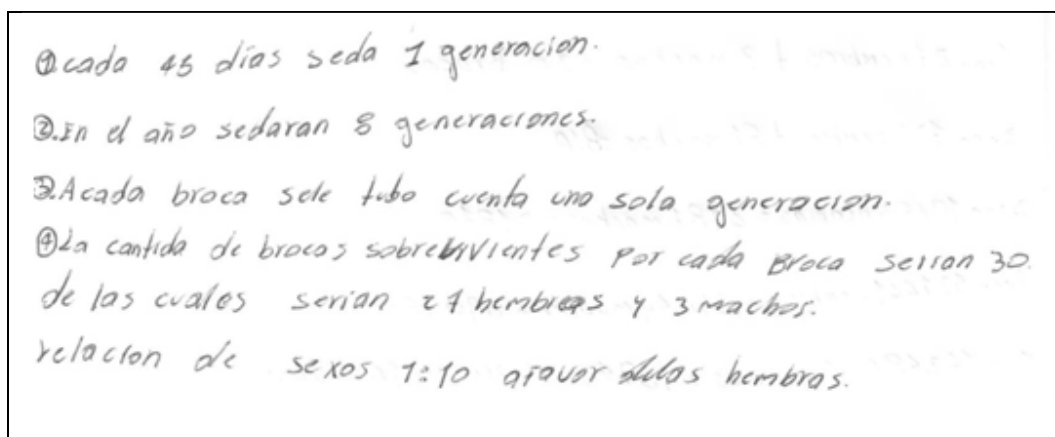 ①cada 45 días seda 1 generacion.
②.En el año sedaran 8 generaciones.
③.Acada broca sele tubo cuenta una sola generacion.
④La cantida de brocas sobrevivientes por cada Broca serian 30.
de las cuales serian 27 hembras y 3 machos.
relacion de sexos 1:10 afavor delas hembras.